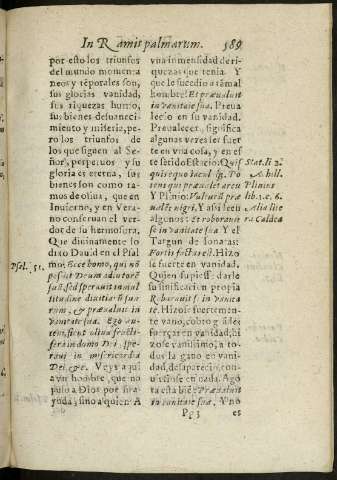 In Ramis palmarum. 589
por esto los triunfos
del mundo momenta
neos y tẽporales son,
sus glorias vanidad,
sus riquezas humo,
sus bienes desuaneci-
miento y miseria, pe-
ro los triunfos de
los que siguen al Se-
ñor, perpetuos y su
gloria es eterna, sus
bienes son como ra-
mos de oliua, que en
Inuierno, y en Vera-
no conseruan el ver-
dor de su hermosura.
Que diuinamente lo
dixo Dauid en el Psal
mo: Ecce homo, qui nõ
posuit Deum adiutorẽ
suũ, sed sperauit in mul
titudine diuitiarũ sua
rum, & præualuit in
vanitate sua. Ego au-
tem, sicut oliua fructi-
fera in domo Dei, spe-
raui in misericordia
Dei, &c. Veys aqui
a vn hombre, que no
puso a Dios por su a-
yuda, sino a quien? A
Psal. 51.
vna inmensidad de ri-
quezas que tenia. Y
que le sucedio a tã mal
hombre? Et præualuit
in vanitate sua. Preua-
lecio en su vanidad.
Preualecer, significa
algunas vezes ser fuer
te en vna cosa, y en es
te sẽtido Estacio: Quis
Y Plinio: Vulturũ præ
ualẽt nigri. Y assi leen
algunos: Et roborauit
in vanitate sua. Y el
Targun de Ionatas:
Fortis factus est. Hizo
se fuerte en vanidad.
Quien supiesse darle
su sinificacion propia
Roborauit se in vanita
te sua. Hizose fuertemen-
te vano, cobro grãdes
fuerças en vanidad, hi
zose vanissimo, a to-
dos la gano en vani-
dad, desaparecio, con-
uirtiose en nada. Ago
ra esta bien: Præualuit
in vanitate sua. Y no
Stat. li 2.
Achill.
Plinius
lib. 1. c. 6.
Alia lite
ra Caldea
Pp 3 es